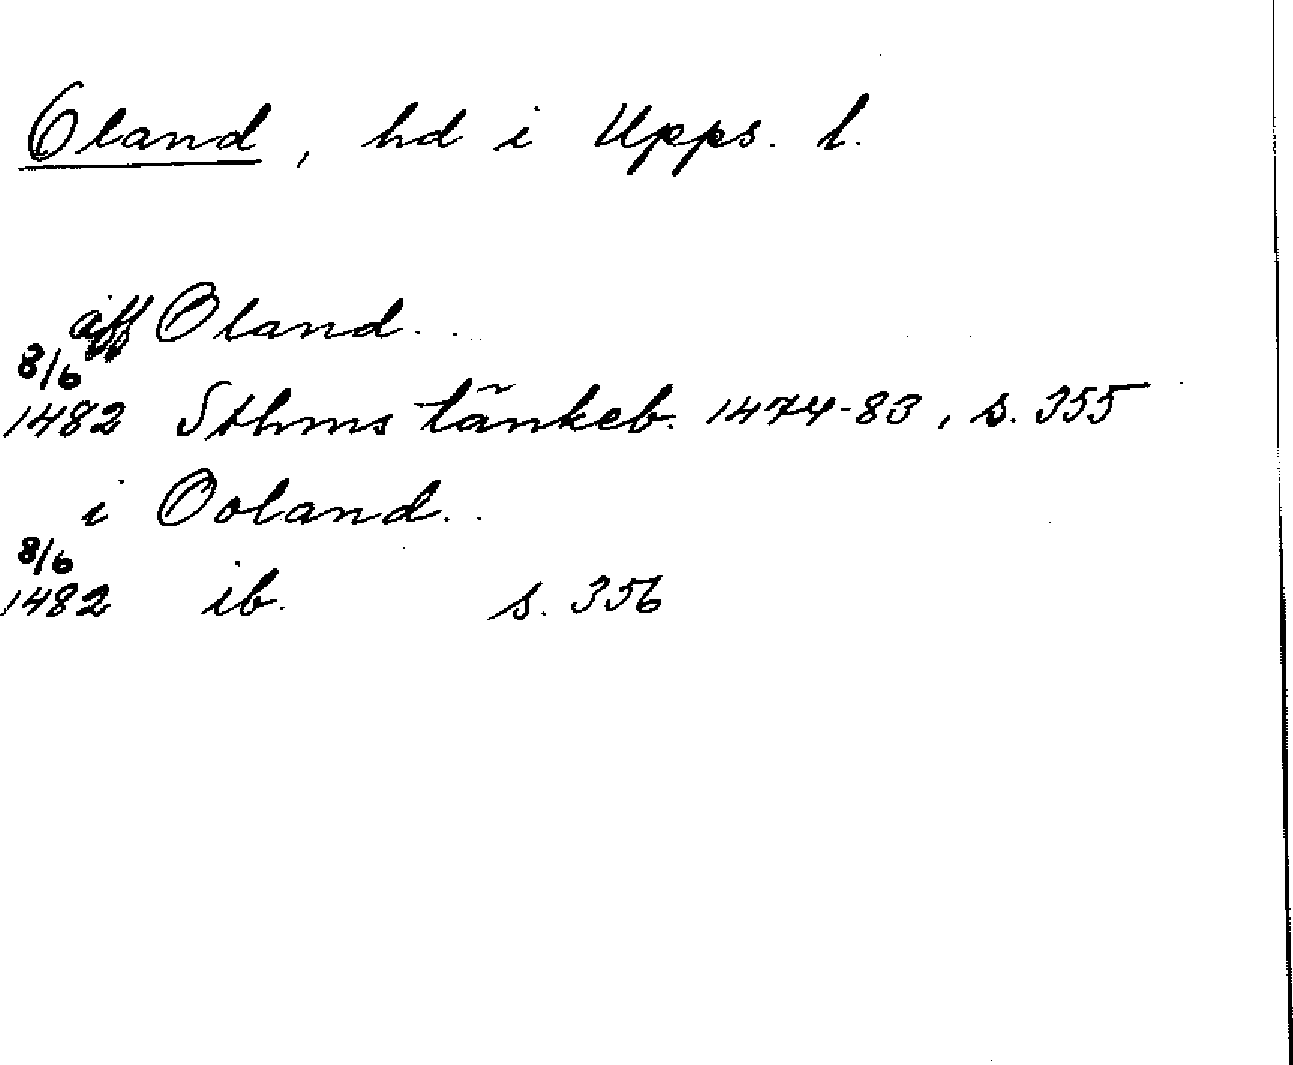 Oland, hd i Upps. l.
äff Oland..
8/6
1482 Sthms tänkeb. 1474-83, s. 355
i Ooland..
8/6
1482 ib. s. 356